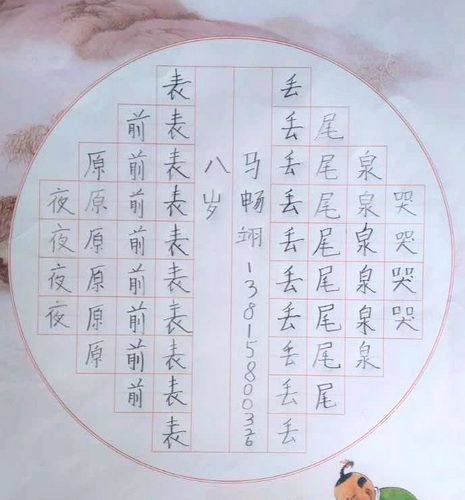 哭哭哭哭
泉泉泉泉泉泉
尾尾尾尾尾尾尾尾
丢丢丢丢丢丢丢丢丢丢
马畅翊13815800326
八岁
表表表表表表表表表表
前前前前前前前前
原原原原原原
夜夜夜夜